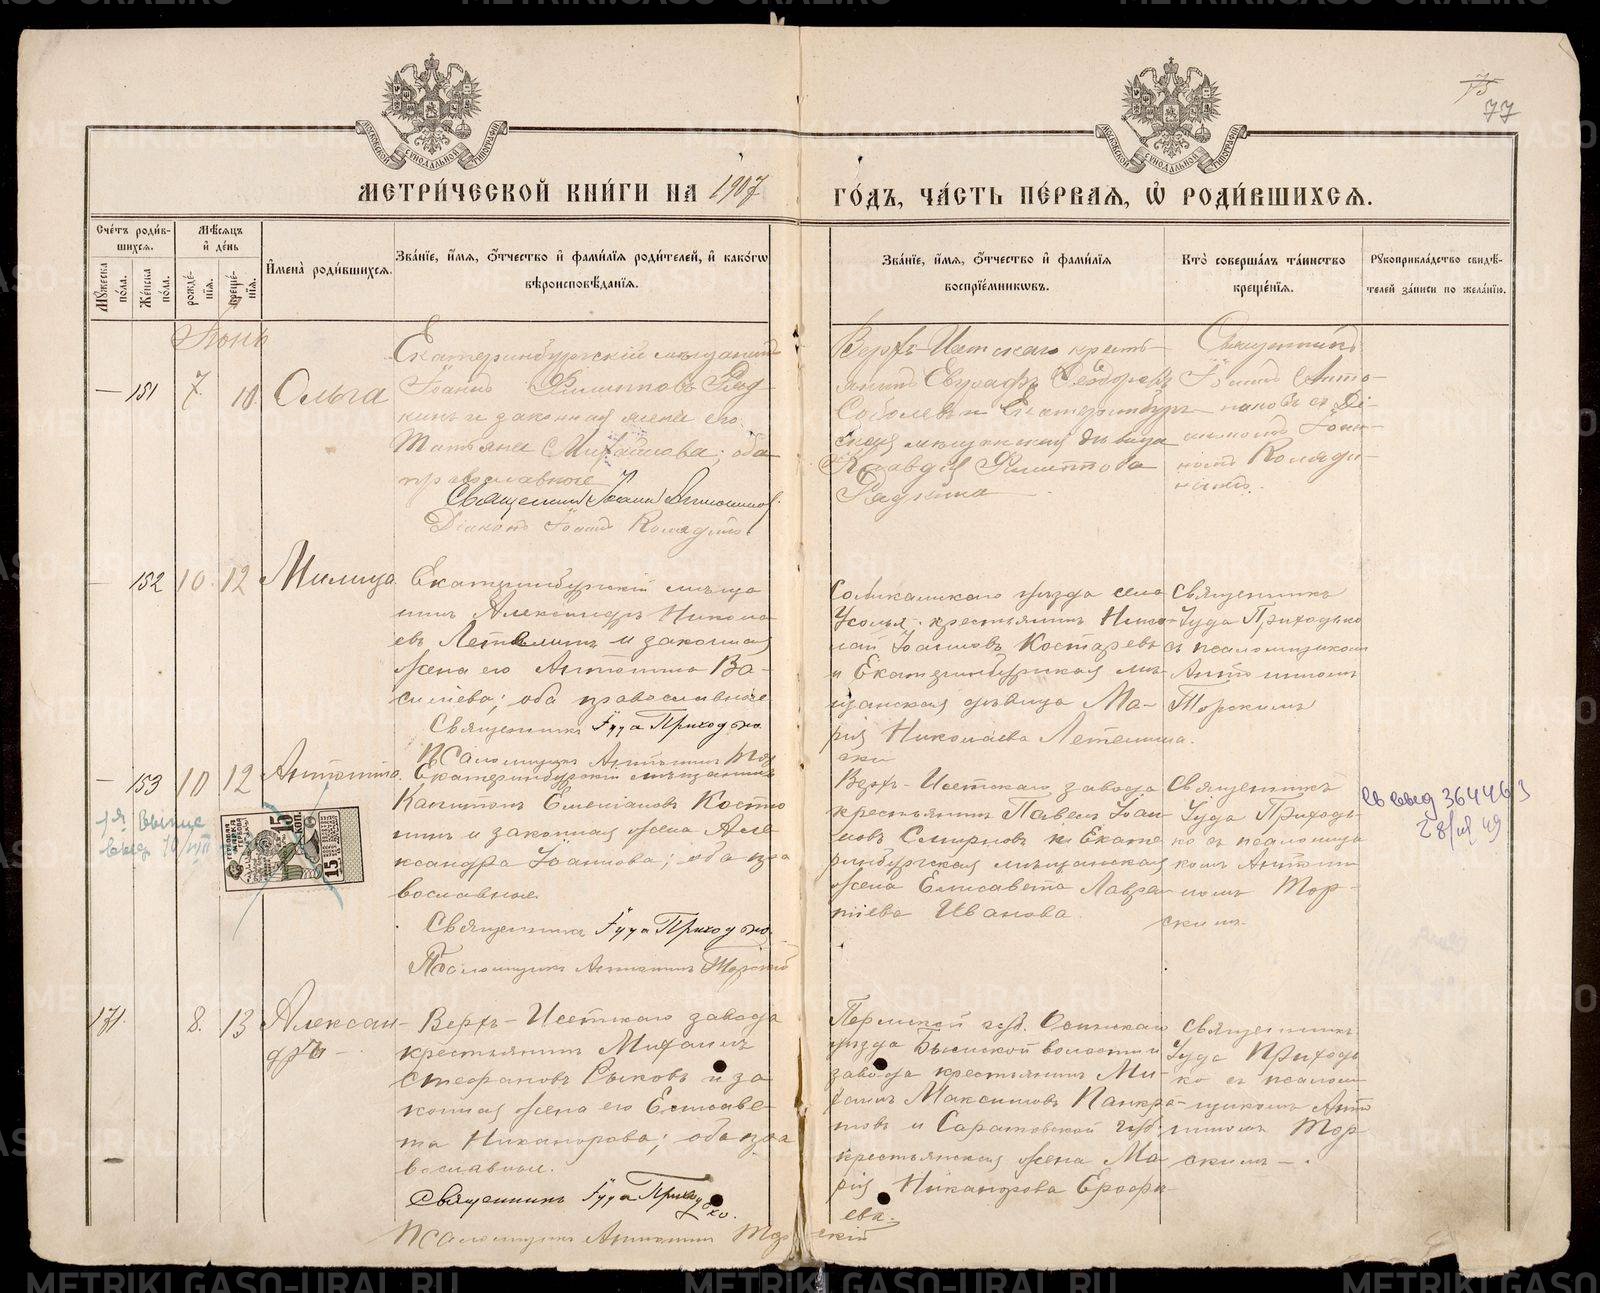 75
77
МОСКОВСКОЙ СѴНОДАЛЬНОЙ ТИПОГРАФІИ
МОСКОВСКОЙ СѴНОДАЛЬНОЙ ТИПОГРАФІИ
МЕТРИ́ЧЕСКОЙ КНИ́ГИ НА 1907 ГО́ДЪ, ЧА́СТЬ ПЕ́РВАЯ, Ѽ РОДИ́ВШИХСЯ.
Сче́тъ роди́в-
шихся.
Мꙋ́жеска по́ла.
Же́нска по́ла.
Мѣ́сяцъ
и҆ де́нь
рожде́-
нїя.
креще́-
нїя.
И҆мена̀ роди́вшихся.
Зва́нїе, и҆́мя, ѻ҆́тчество и҆ фами́лїя роди́телей, и҆ како́гѡ
вѣроисповѣ́данїя.
Зва́нїе, и҆́мя, ѻ҆́тчество и҆ фами́лїя
воспрїе́мникѡвъ.
Кто̀ соверша́лъ та́инство
креще́нїя.
Рꙋкоприкла́дство свидѣ́-
телей за́писи по жела́нїю.
Іюнь
— 151 7. 10. Ольга
Екатеринбургскій мѣщанинъ
Іоаннъ Филипповъ Ряд-
кинъ и законная жена его
Татьяна Михайлова; оба
православные
Священникъ Іоаннъ
Діаконъ Іоаннъ
Верхъ-Исетскаго кресть-
янинъ Евграфъ Ѳеодоровъ
Соболевъ и Екатеринбург-
ская мѣщанская дѣвица
Клавдія Филиппова
Рядкина
Священникъ
Іоаннъ
съ Ді-
акономъ Іоан-
номъ
— 152 10. 12 Милица.
Екатеринбургскій мѣща
нинъ Александръ Никола
евъ Летемин и законная
жена его Антонина Ва-
сильева; оба православные
Священникъ Іуда Приходько
Псаломщикъ Антонинъ Тор
ски
Соликамскаго уѣзда села
Усолья крестьянинъ Нико-
лай Іоанновъ Костаревъ
и Екатеринбургская мѣ-
щанская дѣвица Ма-
рія Николаева Летемина.
Священникъ
Іуда Приходько
съ псаломщикомъ
Антониномъ
Торскимъ
— 153 10 12 Антонина.
Екатеринбургскій мѣщанинъ
Капитонъ Емеліановъ Костю
нинъ и законная жена Але
ксандра Іоаннова; оба пра
вославные.
Священникъ Іуда Приходько.
Псаломщикъ Антонинъ Торскій
Верхъ-Исетскаго завода
крестьянинъ Павелъ Іоан-
новъ Смирновъ и Екате
ринбургская мѣщанская
жена Елисавета Лавре-
нтіева Иванова.
Священникъ
Іуда Приходь-
ко съ псаломщи
комъ Антони
номъ Тор-
скимъ.
15 КОП.
15
364463
171. 8. 13 Алексан-
дръ —
Верхъ-Исетскаго завода
крестьянинъ Михаилъ
Стефановъ Рыковъ и за
конная жена его Елисаве-
та Никанорова; оба пра
вославные.
Священникъ Іуда Приходько.
Псаломщикъ Антонинъ Тор скій
Пермской губ. Осинскаго
уѣзда Бымской волости и
завода крестьянинъ Ми-
хаилъ Максимовъ Панкра-
товъ и Саратовской губ.
крестьянская жена Ма-
рія Никанорова Ерофе-
ева.
Священникъ
Іуда Приходь
ко съ псалом
щикомъ Анто
ниномъ Тор-
скимъ — .
METRIKI.GASO-URAL.RU